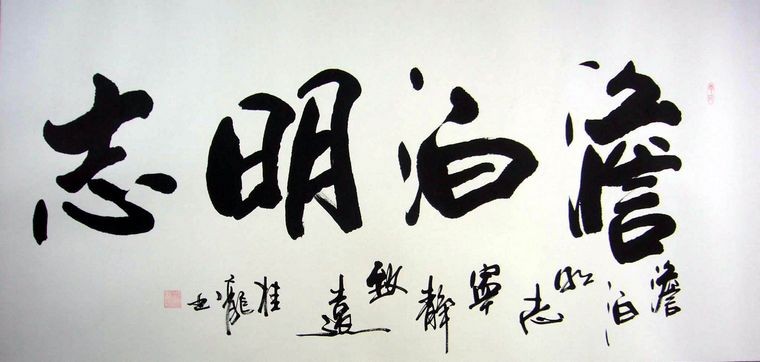 澹泊明志
澹泊明志寧靜致遠
桂龍书